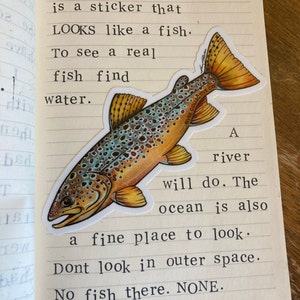 is a sticker that
LOOKS like a fish.
To see a real
fish find
water.
A
river
will do. The
ocean is also
a fine place to look.
Dont look in outer space.
No fish there. NONE.